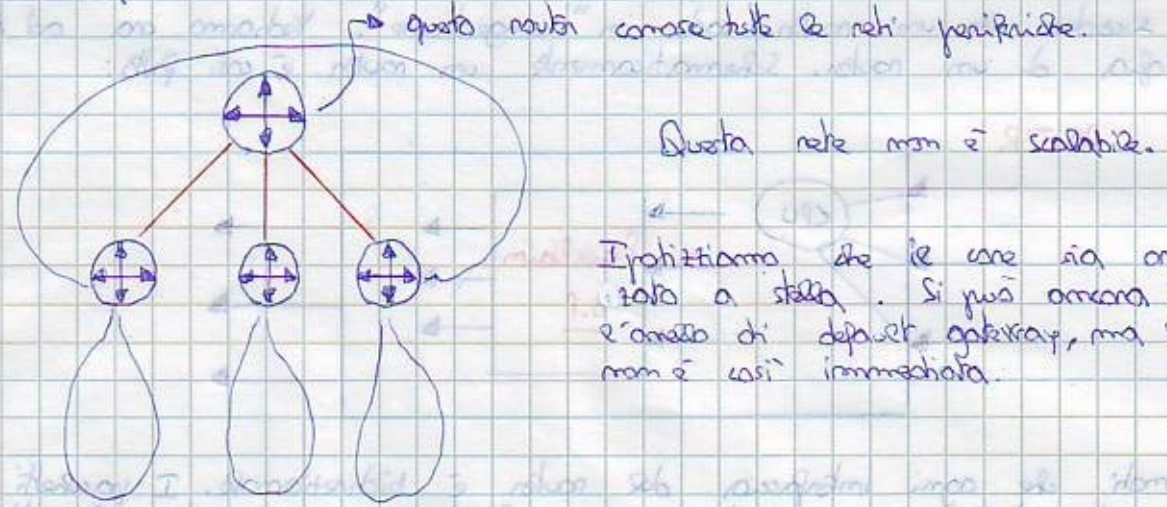 questo router conosce tutte le reti periferiche.
Questa rete non è scalabile.
Ipotizziamo che il core sia or
zato a stella. Si può ancora
l'anello di default gateway, ma
non è così immediata.